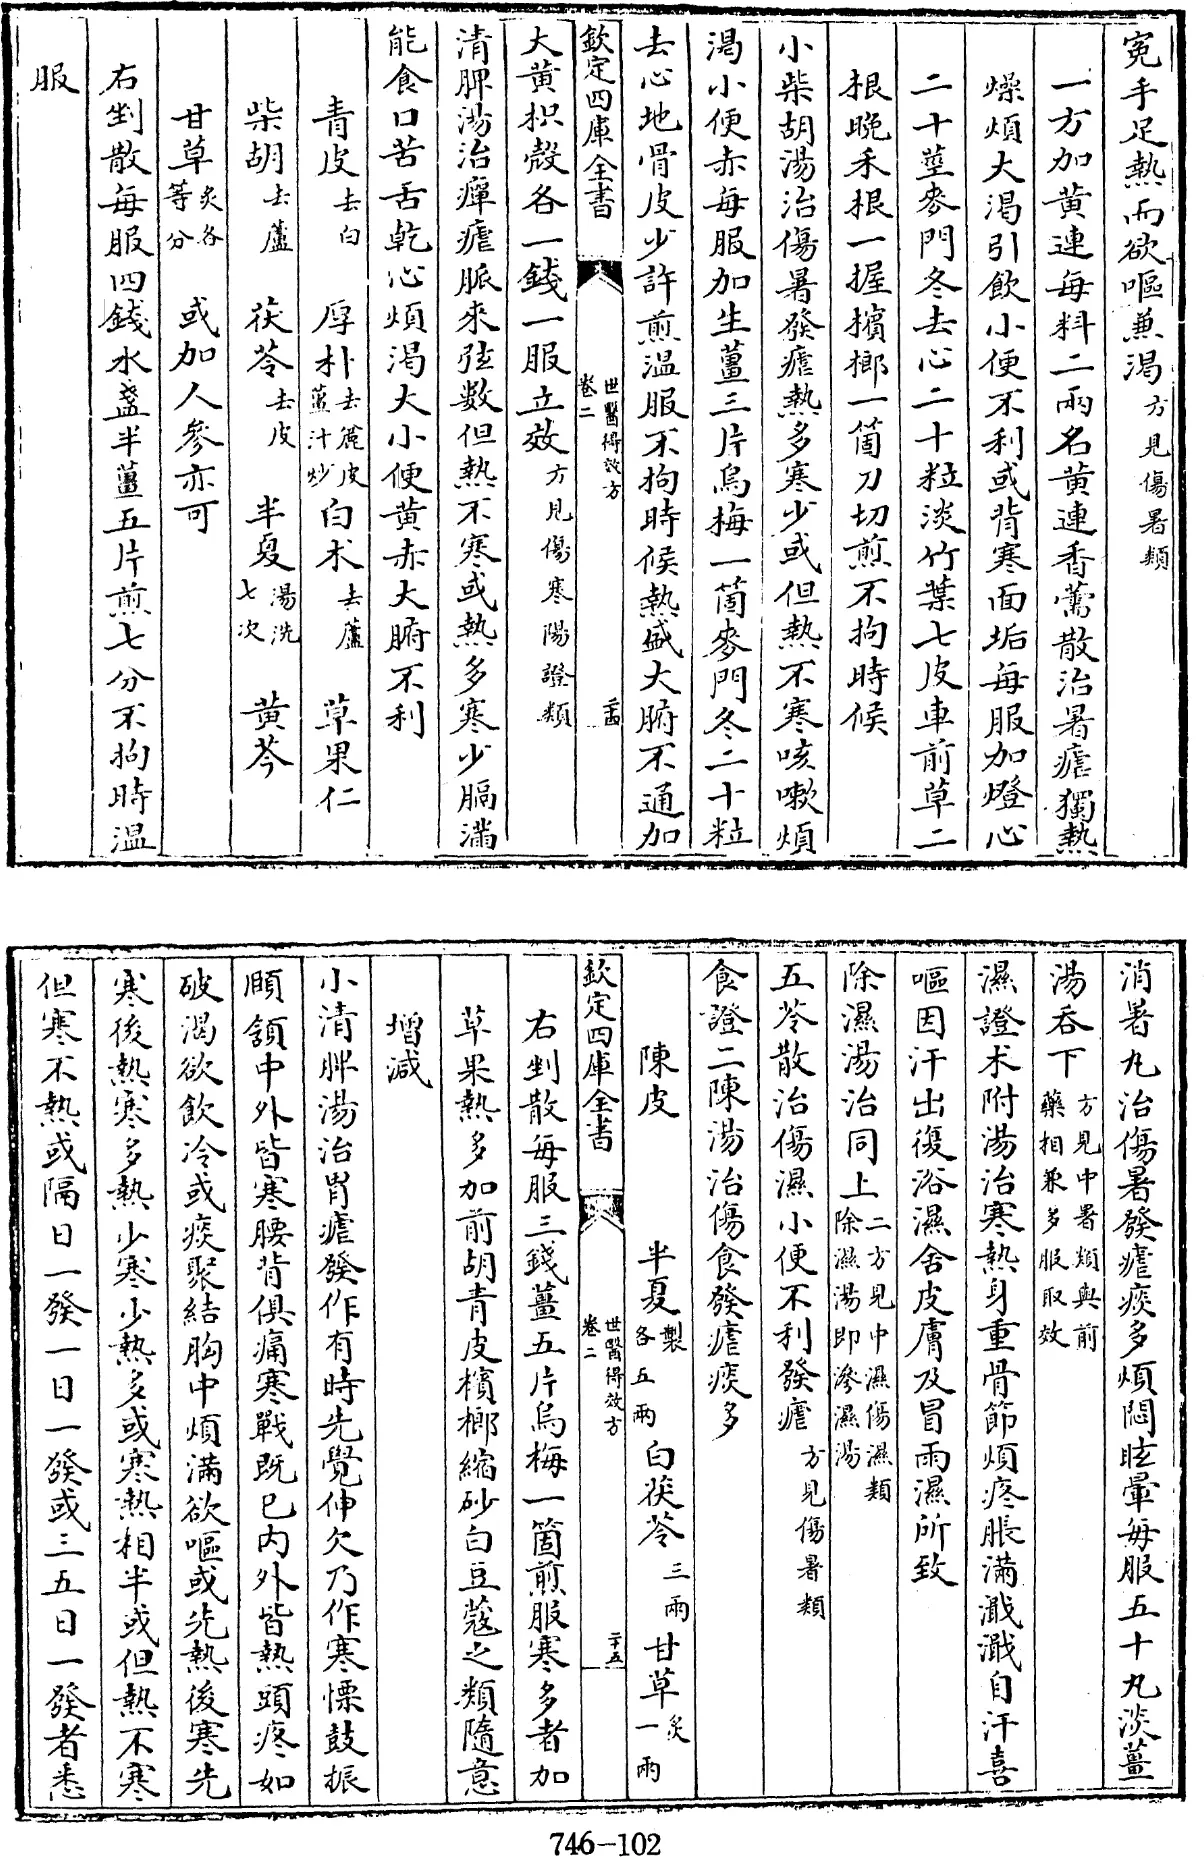 冤手足熱而欲嘔兼渴方見傷暑類
一方加黄連每料二兩名黄連香薷散治暑瘧獨熱
燥煩大渴引飲小便不利或背寒面垢每服加燈心
二十莖麥門冬去心二十粒淡竹葉七皮車前草二
根晚禾根一握檳榔一箇刀切煎不拘時候
小柴胡湯治傷暑發瘧熱多寒少或但熱不寒咳嗽煩
渴小便赤每服加生薑三片烏梅一箇麥門冬二十粒
去心地骨皮少許煎温服不拘時候熱盛大腑不通加
欽定四庫全書 世醫得效方 卷二 二十四
大黄枳殻各一錢一服立效方見傷寒陽證類
清脾湯治癉瘧脈來弦數但熱不寒或熱多寒少膈滿
能食口苦舌乾心煩渴大小便黄赤大腑不利
青皮去白 厚朴去麄皮薑汁炒 白术去蘆 草果仁
柴胡去蘆 茯苓去皮 半夏湯洗七次 黄芩
甘草炙各等分 或加人參亦可
右剉散每服四錢水盞半薑五片煎七分不拘時温
服
消暑丸治傷暑發瘧痰多煩悶眩暈每服五十丸淡薑
湯吞下方見中暑類與前藥相兼多服取效
濕證术附湯治寒熱身重骨節煩疼脹滿濈濈自汗喜
嘔因汗出復浴濕舍皮膚及冒雨濕所致
除濕湯治同上二方見中濕傷濕類除濕湯即滲濕湯
五苓散治傷濕小便不利發瘧方見傷暑類
食證二陳湯治傷食發瘧痰多
陳皮 半夏製各五兩 白茯苓三兩 甘草炙一兩
欽定四庫全書 世醫得效方 卷二 二十五
右剉散每服三錢薑五片烏梅一箇煎服寒多者加
草果熱多加前胡青皮檳榔縮砂白豆蔻之類隨意
增減
小清脾湯治胃瘧發作有時先覺伸欠乃作寒慄鼓振
頤頷中外皆寒腰背俱痛寒戰既已内外皆熱頭疼如
破渴欲飲冷或痰聚結胸中煩滿欲嘔或先熱後寒先
寒後熱寒多熱少寒少熱多或寒熱相半或但熱不寒
但寒不熱或隔日一發一日一發或三五日一發者悉
746-102